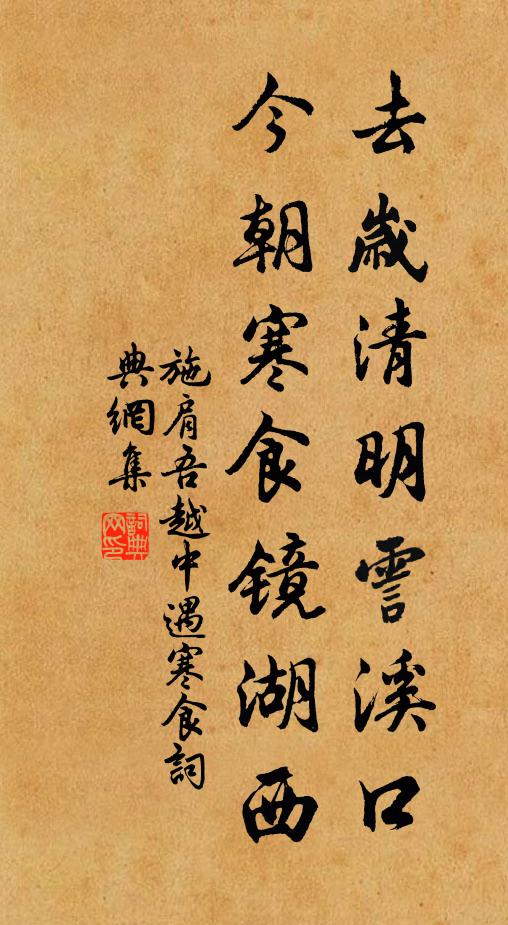 去歲清明霅溪口
今朝寒食镜湖西
施肩吾越中遇寒食詞
典網集
詞典
网印